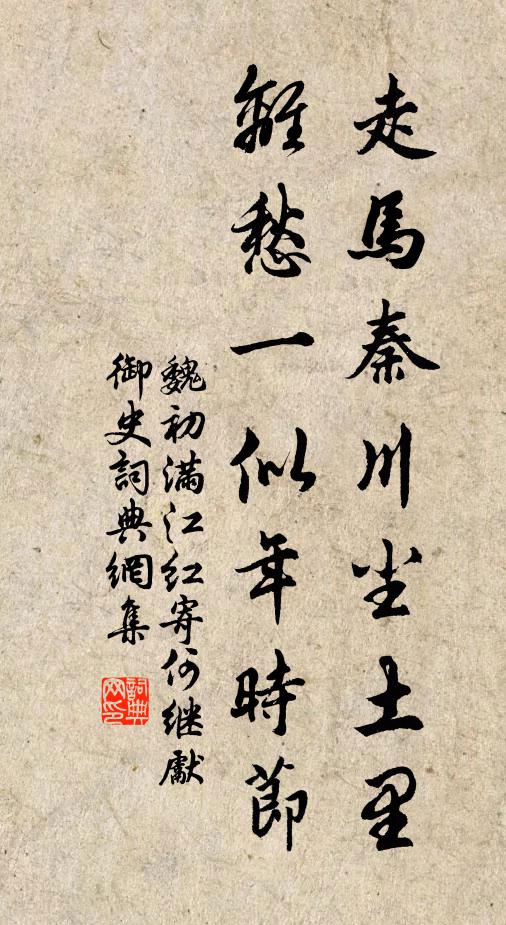 走馬秦川尘土里
離愁一似年時節
魏初满江红寄何继獻
御史詞典網集
詞典网印